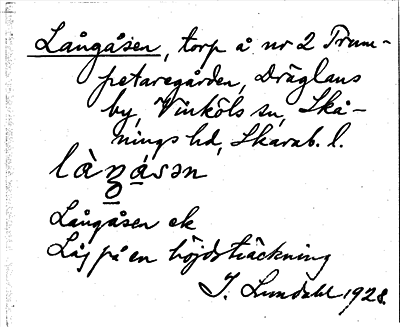 Långåsen, torp å nr 2 Trum-
petaregården, Dräglans
by, Vinköls sn, Skå-
nings hd, Skarab. l.
Långåsen ek
Låg på en höjdsträckning
I. Lundahl 1928.